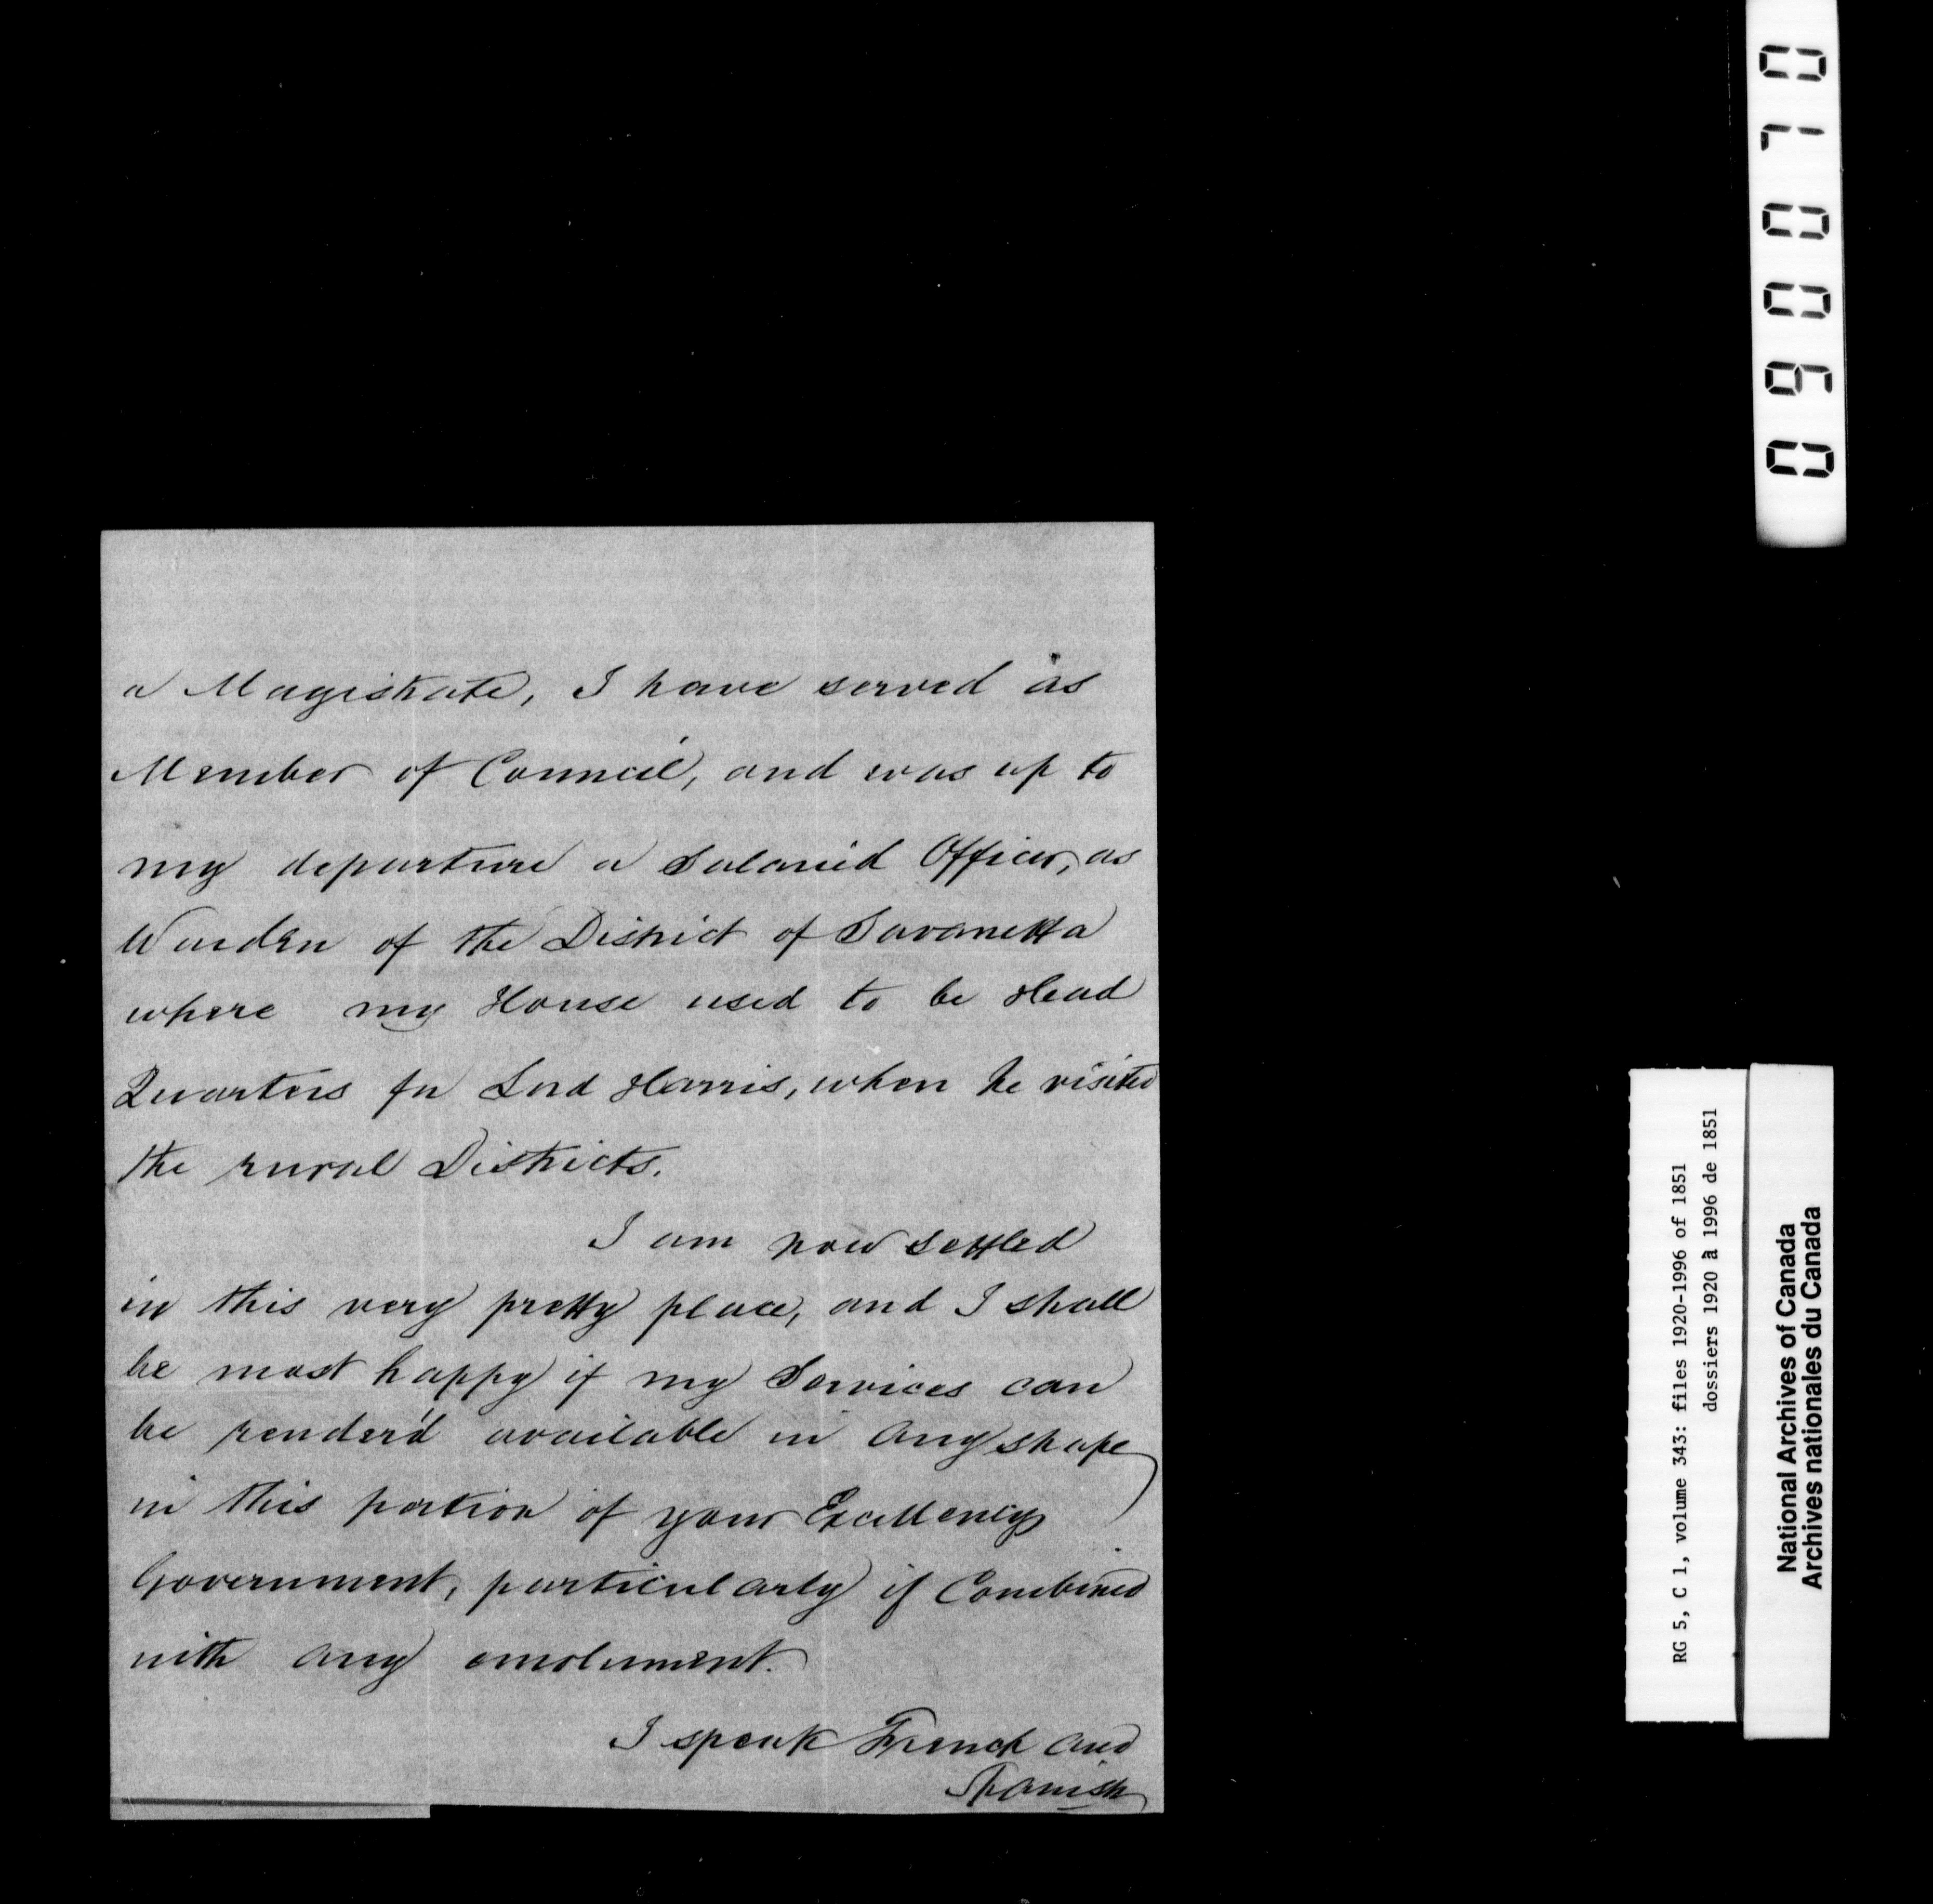 a Magistrate, I have served as
Member of Council, and was up to
my departure a Salaried Officer, as
Warden of the District of Savanetta
where my House used to be Head
Quarters for Lord Harris, when he visited
the rural Districts.
I am now settled
in this very pretty place, and I shall
be most happy if my Services can
be render'd available in any shape
in this portion of your Excellency
Government, particularly if Combined
with any emolument.
I speak French and
Spanish
RG 5, C 1, volume 343: files 1920-1996 of 1851
dossiers 1920 à 1996 de 1851
National Archives of Canada
Archives nationales du Canada
090070